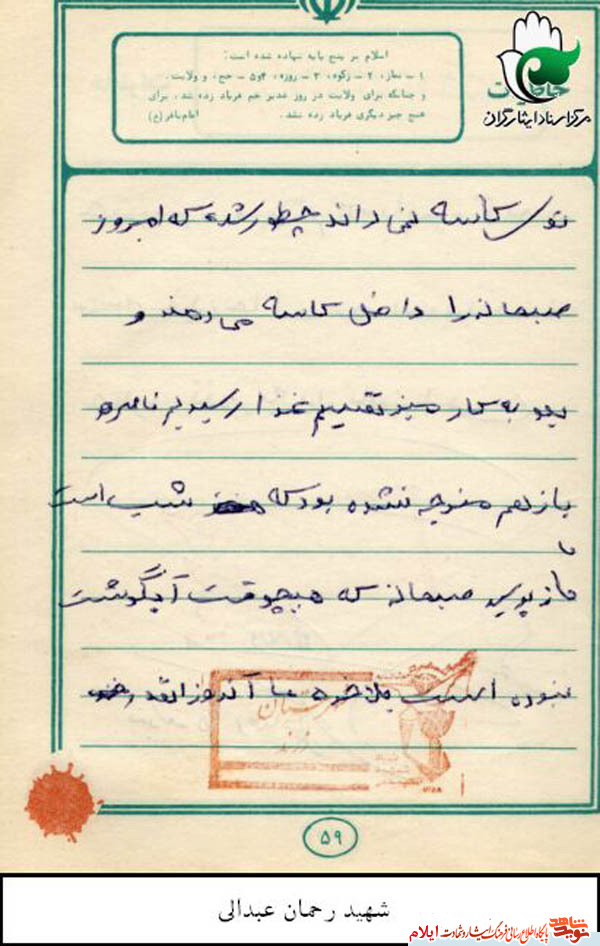 اسلام بر پنج پایه نهاده شده است:
۱ – نماز، ۲ – زکوة، ۳ – روزه، ۴و۵ – حج، و ولایت.
و چنانکه برای ولایت در روز غدیر خم فریاد زده شد، برای
هیچ چیز دیگری فریاد زده نشد. امام باقر (ع)
مرکز اسناد ایثارگران
توی کاسه نمی داند چطور شده که امروز
صبحانه را داخل کاسه می دهند و
بعد به کنار میز تقسیم غذا رسیدیم ناصره
باز هم متوجه نشده بود که شب است
ما
ما زپرس صبحانه که هیچوقت آبگوشت
نبوده است بلاخره ما آنروز انقدر
۵۹
شهید رحمان عبدالی
نوید شاهد پایگاه اطلاع رسانی فرهنگ ایثار و شهادت ایلام